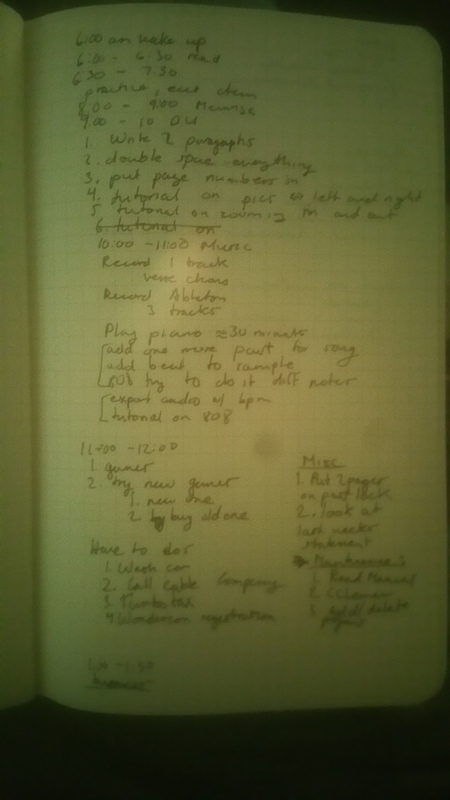 6:00 am wake up
6:00 - 6:30 read
6:30 - 7:30
practice, eat, clean
8:00 - 9:00 Memrise
9:00 - 10
1. Write 2 paragraphs
2. double space everything
3. put page numbers in
4. tutorial on pics to left and right
5 tutorial on zooming in and out
6 tutorial on
10:00 - 11:00 Music
Record 1 track
verse chorus
Record Ableton
3 tracks
Play piano ≈ 30 minutes
add one more part to song
add beat to sample
808 try to do it diff notes
export audio w/ bpm
tutorial on 808
11:00 - 12:00
1.
2. try new
1. new one
2. buy old one
Have to do:
1. Wash car
2. Call cable company
3. Turbotax
4. registration
Misc
1. Put 2 pager
on
2. look at
last
statement
1. Read Manual
2. CCleaner
3. delete